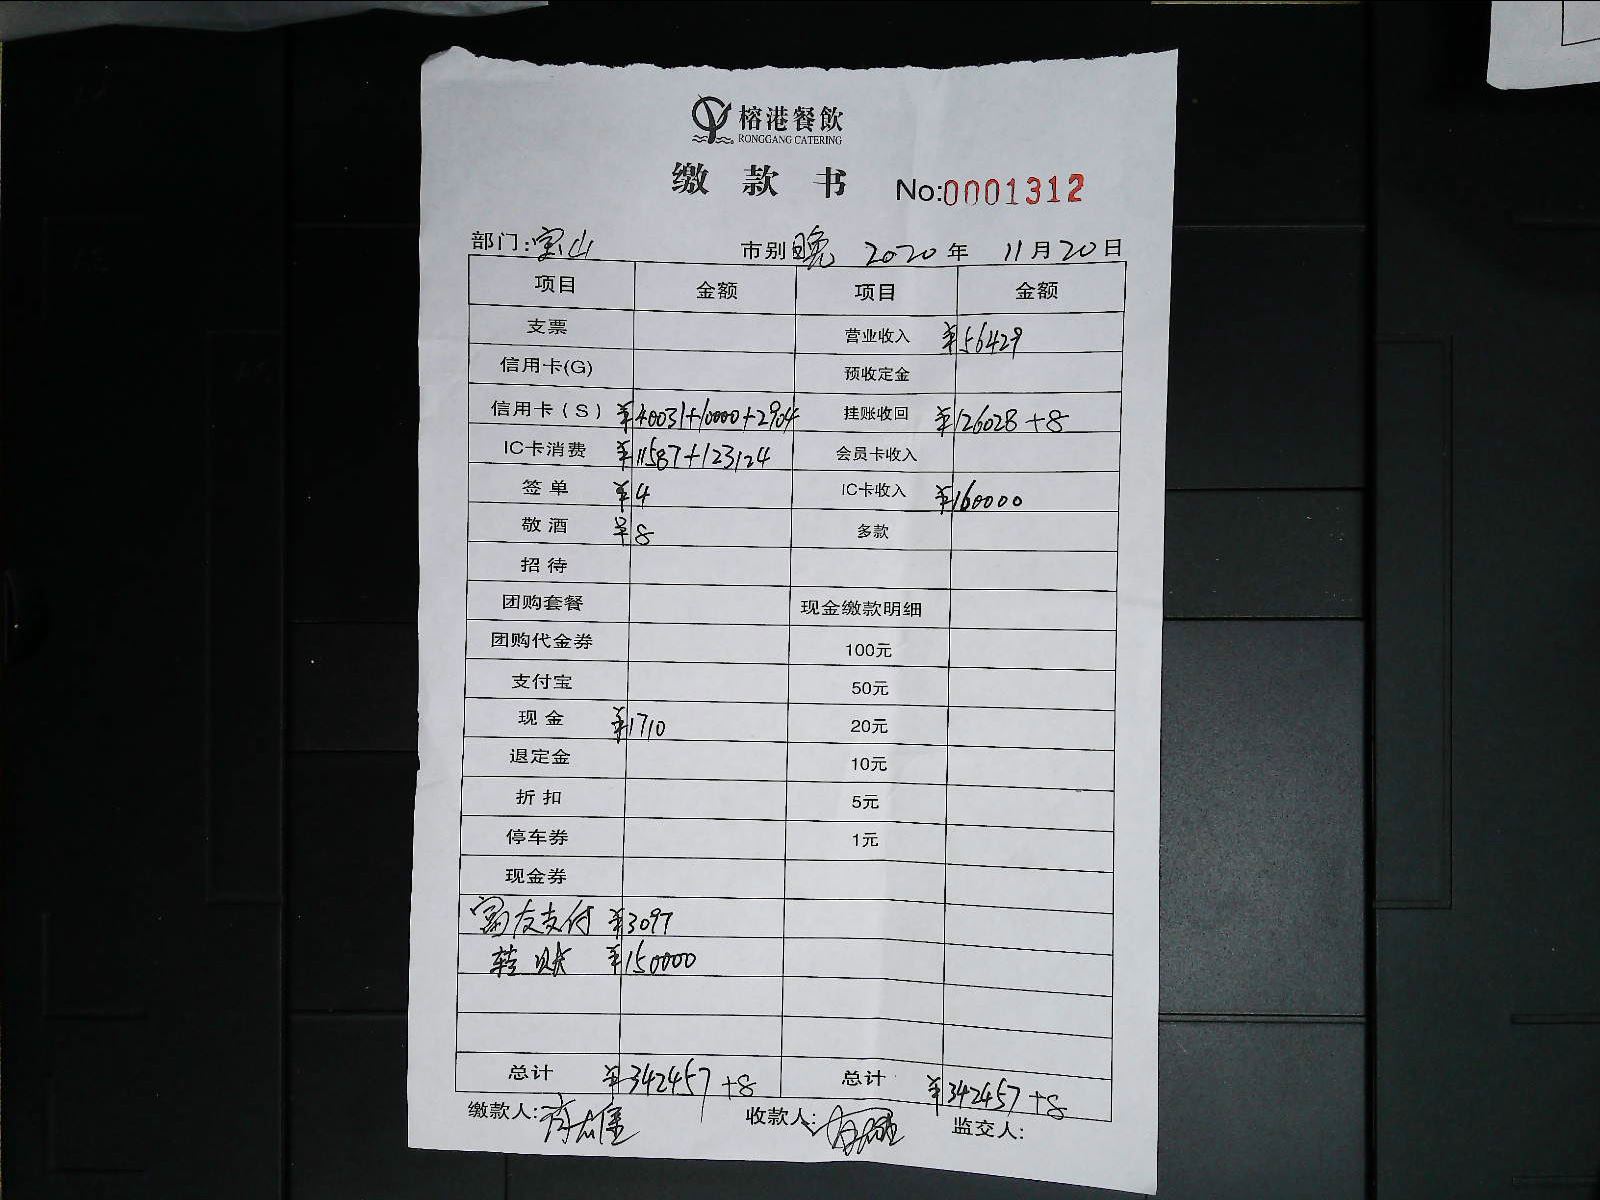 榕港餐飲
RONGGANG CATERING
缴款书 No:0001312
部门:宝山 市别 晚 2020年 11月20日
项目 金额 项目 金额
支票 营业收入 ¥56429
信用卡(G) 预收定金
信用卡(S) ¥40031+10000+2904 挂账收回 ¥126028+8
IC卡消费 ¥11587+123124 会员卡收入
签单 ¥4 IC卡收入 ¥160000
敬酒 ¥8 多款
招待
团购套餐 现金缴款明细
团购代金券 100元
支付宝 50元
现金 ¥1710 20元
退定金 10元
折扣 5元
停车券 1元
现金券
富友支付 ¥3097
转账 ¥150000
总计 ¥342457+8 总计 ¥342457+8
缴款人: 收款人: 监交人: